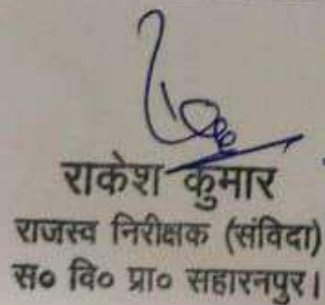 राकेश कुमार
राजस्व निरीक्षक (संविदा)
स० वि० प्रा० सहारनपुर।